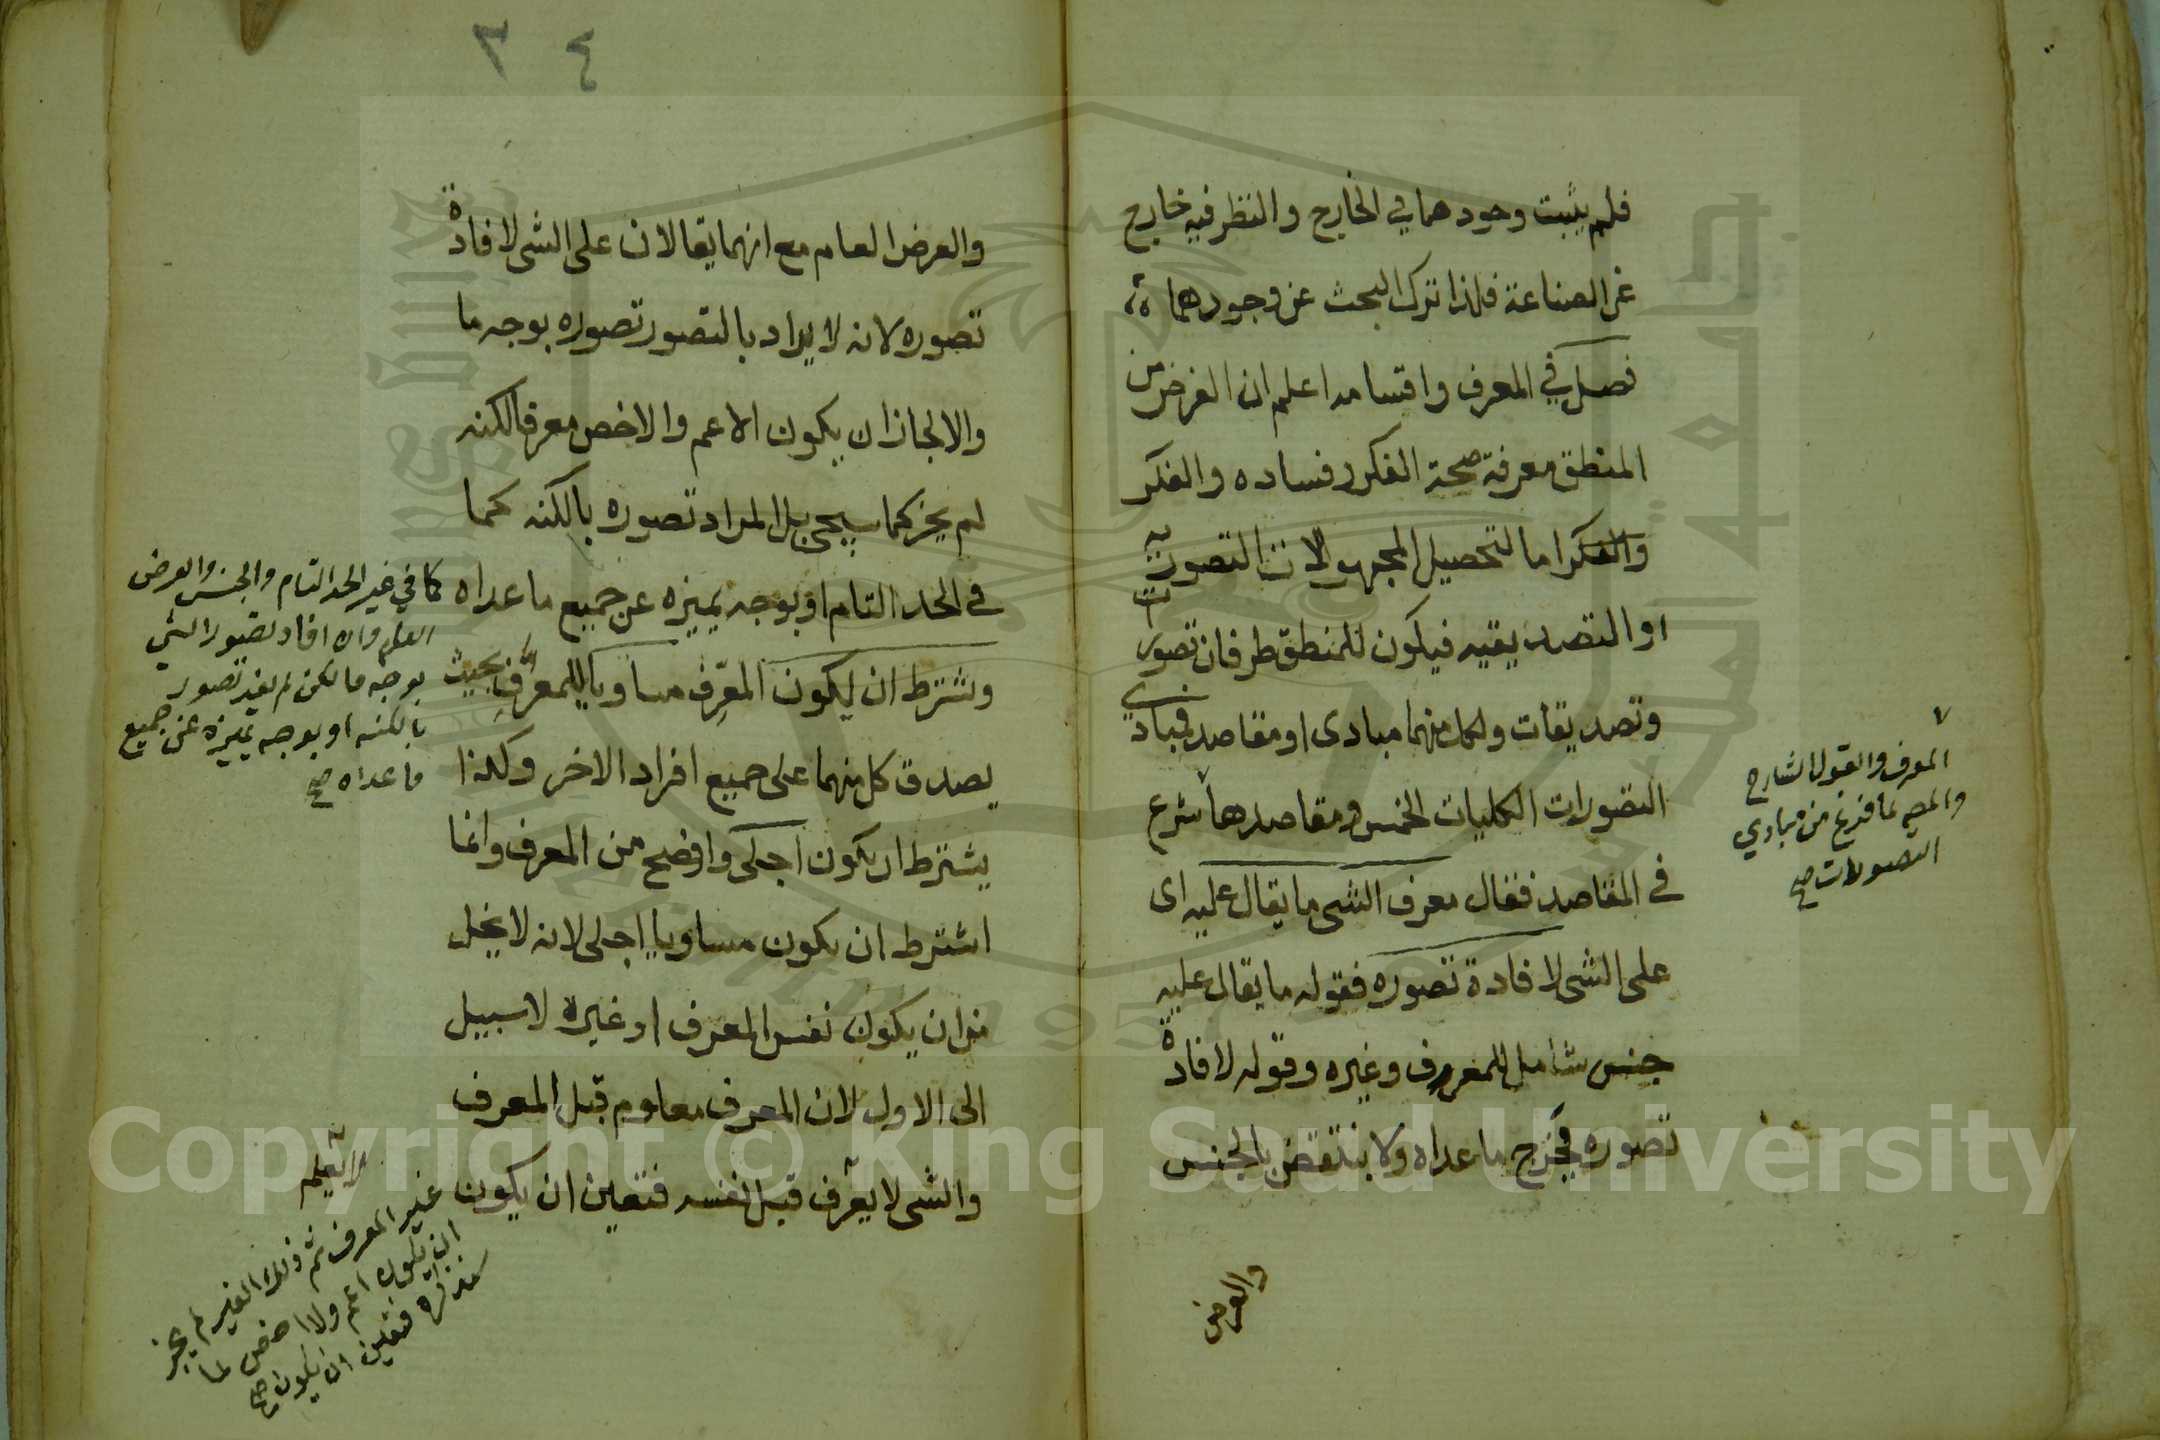 فلم يثبت وجودهما في الخارج والنظر فيه خارج
عن الصناعة فلهذا ترك البحث عن وجودهما
فصل في المعرف واقسامه اعلم ان الغرض من
المنطق معرفة صحة الفكر وفساده والفكر
والفكر اما لتحصيل المجهولات التصورية
او التصديقية فيكون للمنطق طرفان تصورات
وتصديقات ولكل منهما مبادى ومقاصد فمبادي
التصورات الكليات الخمس ومقاصدها شرع
في المقاصد فقال معرف الشى ما يقال عليه اى
على الشى لافادة تصوره فقوله ما يقال عليه
جنس شامل للمعرف وغيره وقوله لافادة
تصوره يخرج ما عداه ولا ينتقض بالجنس
والعرض
المعرف والقول الشارح
والمص لما فرغ من مبادي
التصورات صح
٣ ٤
والعرض العام مع انهما يقالان على الشى لافادة
تصوره لانه لا يراد بالتصور تصوره بوجه ما
والا لجاز ان يكون الاعم والاخص معرفا لكنه
لم يجز كما سيجى بل المراد تصوره بالكنه كما
في الحد التام او بوجه يميزه عن جميع ما عداه
ويشترط ان يكون المعرف مساويا للمعرف بحيث
يصدق كل منهما على جميع افراد الاخر وكذا
يشترط ان يكون اجلى واوضح من المعرف وانما
اشترط ان يكون مساويا اجلى لانه لا يخل
من ان يكون نفس المعرف او غيره لا سبيل
الى الاول لان المعرف معلوم قبل المعرف
والشى لا يعرف قبل نفسه فتعين ان يكون
كما في غير الحد التام والجنس والعرض
العام وان افاد تصور الشي
بوجه ما لكن لم يفد تصور
بالكنه او بوجه يميزه عن جميع
ما عداه صح
لا يعلم
غير المعرف ثم ذلك الغير لم يجز
ان يكون اعم ولا اخص لما
سنذكره فتعين ان يكون صح
Copyright © King Saud University